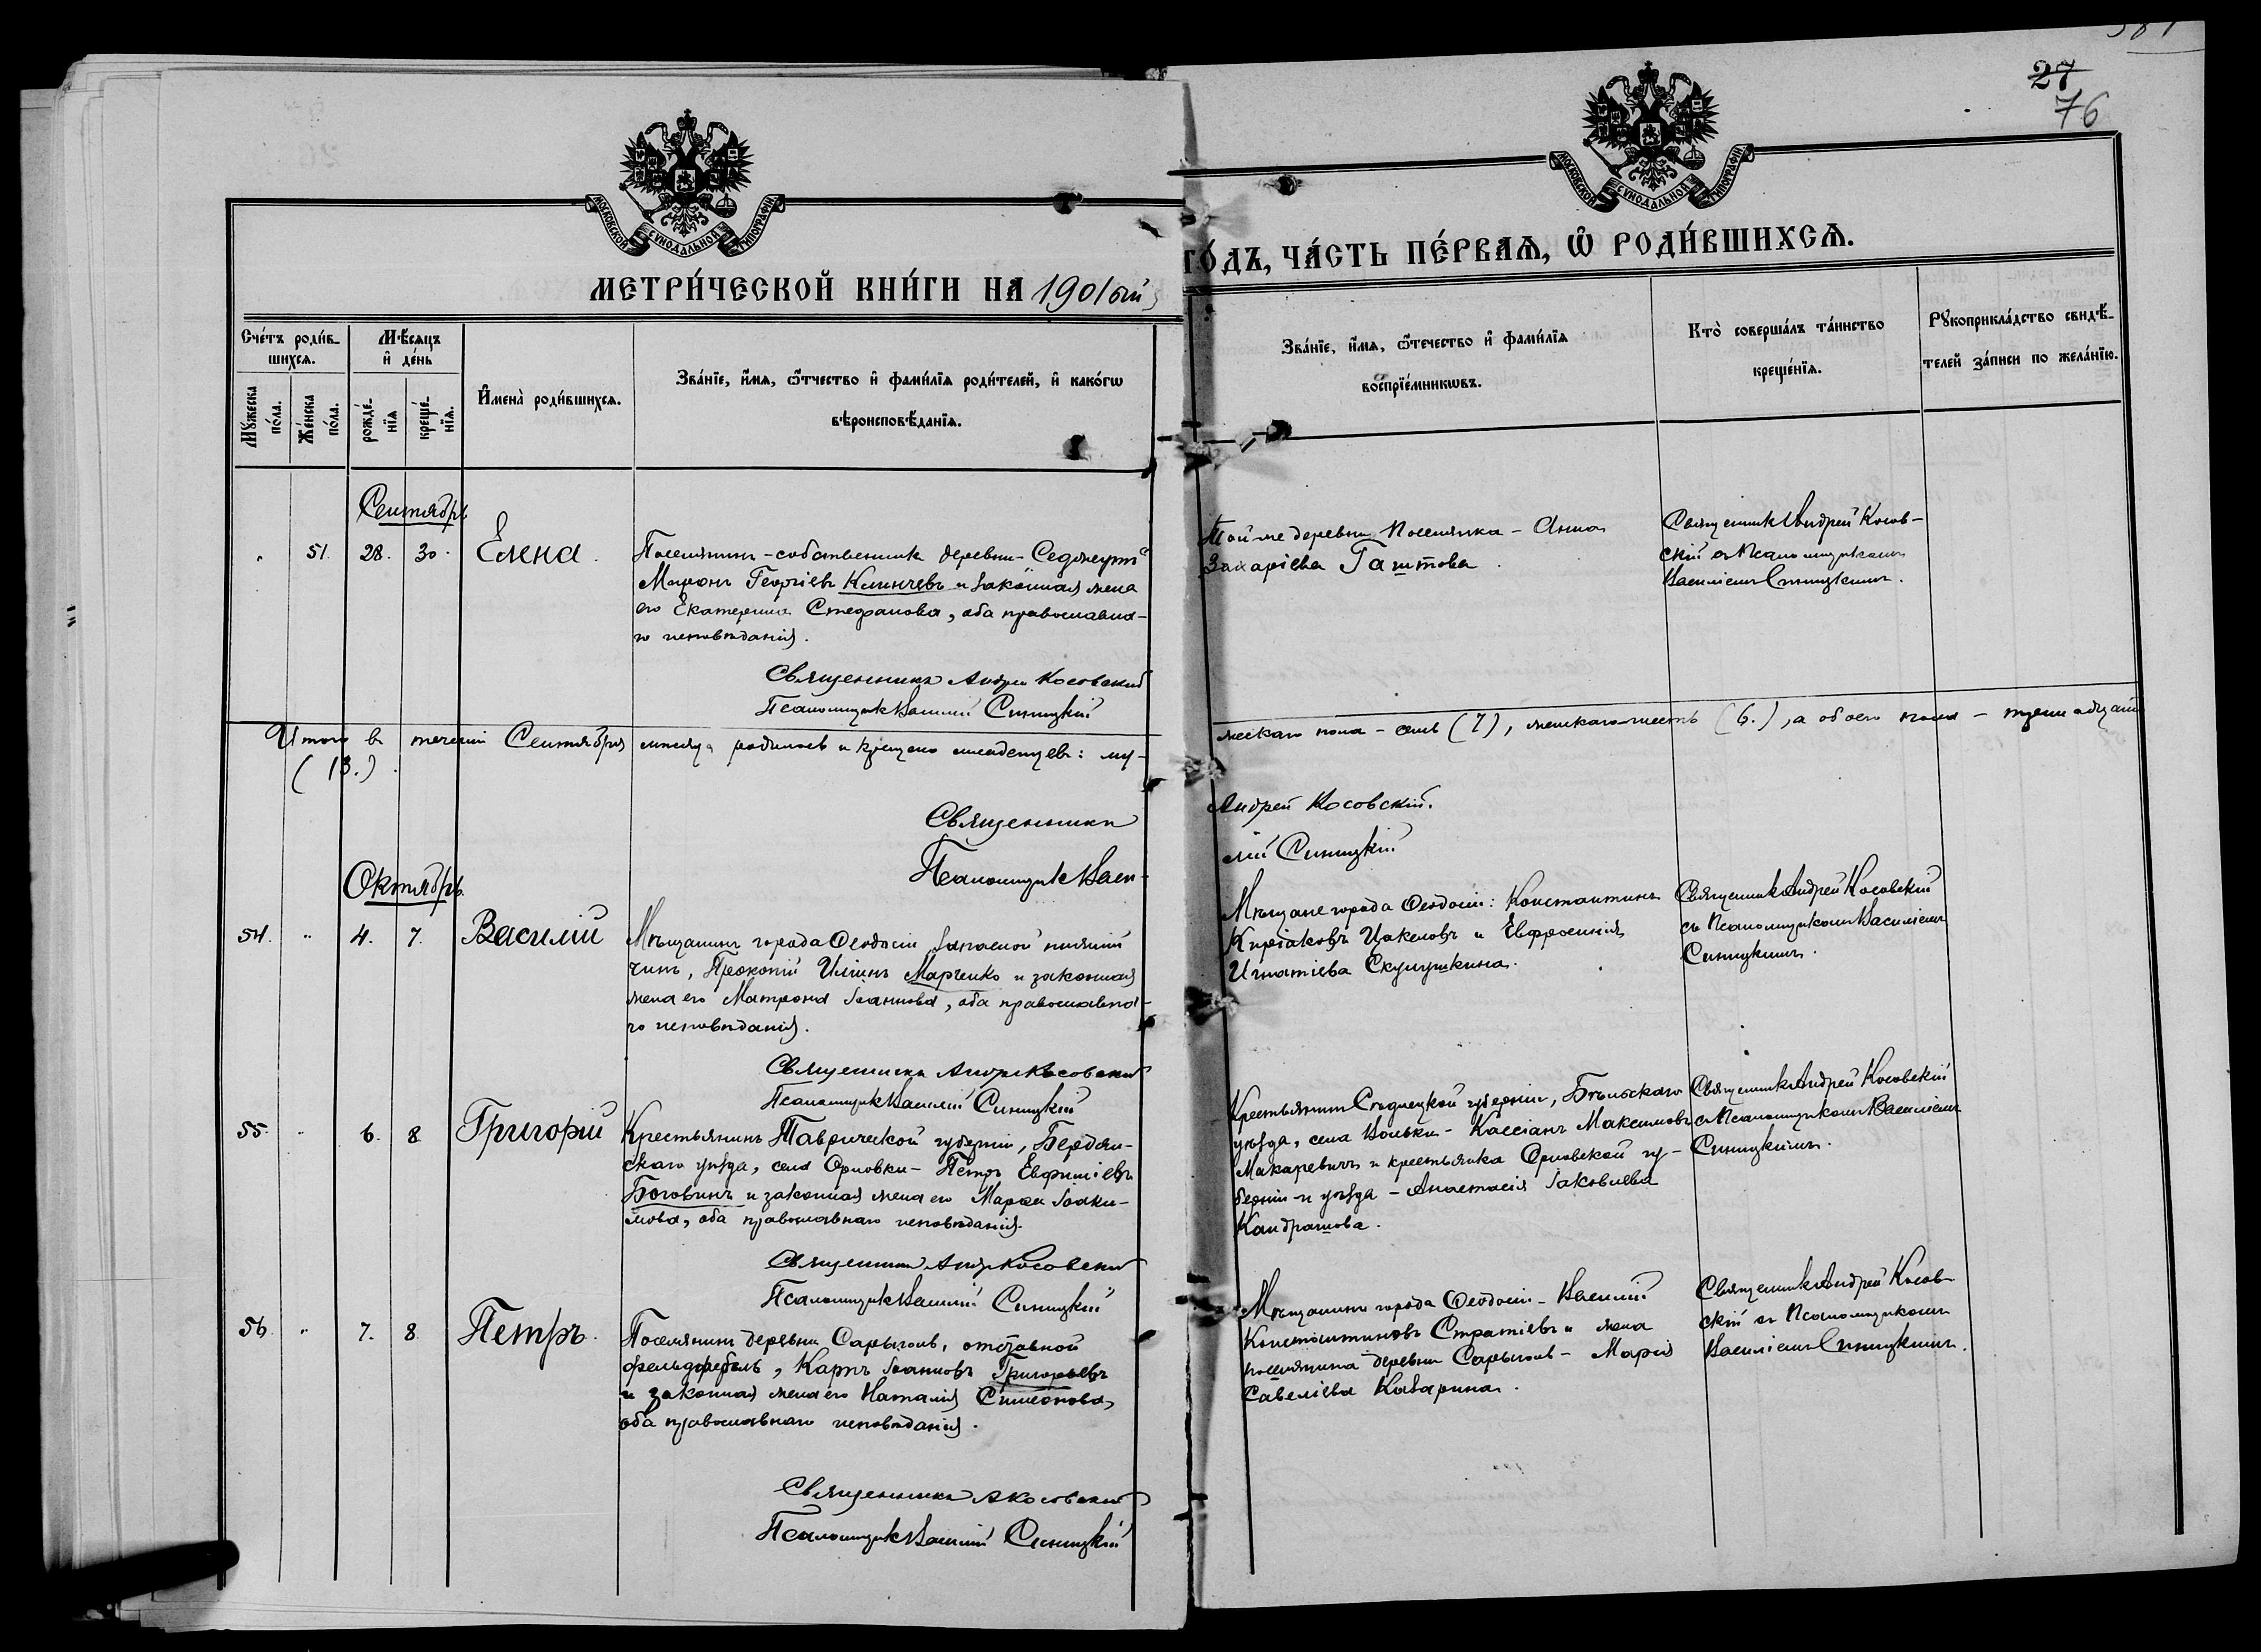 27
76
МОСКОВСКОЙ СУНОДАЛЬНОЙ ТИПОГРАФІИ
МОСКОВСКОЙ СУНОДАЛЬНОЙ ТИПОГРАФІИ
МЕТРИ́ЧЕСКОЙ КНИ́ГИ НА 1901ый
ГО́ДЪ, ЧА́СТЬ ПЕ́РВАѦ, Ѡ РОДИ́ВШИХСѦ.
Сче́тъ роди́в-
шихсѧ.
Мѣ́сѧцъ
и҆ де́нь
Мꙋ́жеска по́ла.
Же́нска по́ла.
рожде́-
нїѧ
креще́-
нїѧ.
И҆мена̀ роди́вшихсѧ.
Зва́нїе, и҆́мѧ, ѻ҆́тчество и҆ фами́лїѧ роди́телей, и҆ како́гѡ
вѣроисповѣ́данїѧ.
Зва́нїе, и҆́мѧ, ѻ҆те́чество и҆ фами́лїѧ
воспрїе́мникѡвъ.
Кто̀ соверша́лъ та́инство
креще́нїѧ.
Рꙋкоприкла́дство свидѣ́-
телей за́писи по жела́нїю.
Сентябрь
„ 51. 28. 30. Елена.
Поселянинъ-собственникъ деревни
Георгіевъ Клинчевъ и законная жена
его Екатерина Стефанова, оба православна-
го исповѣданія.
Священникъ Андрей Косовскій
Псаломщикъ Василій Синицкій
Той-же деревни поселянка - Анна
Захаріева Гаштова.
Священникъ Андрей Косов-
скій съ Псаломщикомъ
Василіемъ Синицкимъ.
Итого въ теченіи Сентября мѣсяца родилось и крещено младенцевъ: му-
жескаго пола - семь (7), женскаго - шесть (6.), а обоего пола - тринадцать
(13.).
Священникъ Андрей Косовскій.
Псаломщикъ Васи-
лій Синицкій
Октябрь.
54. „ 4. 7. Василій
Мѣщанинъ города Ѳеодосіи, запасной нижній
чинъ, Прокопій Иліинъ Марченко и законная
жена его Матрона Іоаннова, оба православна-
го исповѣданія.
Священникъ Андрей Косовскій
Псаломщикъ Василій Синицкій
Мѣщане города Ѳеодосіи: Константинъ
Киріаковъ Цакеловъ и Евфросинія
Игнатіева
Священникъ Андрей Косовскій
съ Псаломщикомъ Василіемъ
Синицкимъ.
55. „ 6. 8. Григорій
Крестьянинъ Таврической губерніи, Бердян-
скаго уѣзда, села Орловки - Петръ Евфиміевъ
Боговинъ и законная жена его Марѳа Іоаки-
мова, оба православнаго исповѣданія.
Священникъ Андрей Косовскій
Псаломщикъ Василій Синицкій
Крестьянинъ Сѣдлецкой губерніи, Бѣльскаго
уѣзда, села Вольки - Кассіанъ Максимовъ
Макаревичъ и крестьянка Орловской гу-
берніи и уѣзда - Анастасія Іаковлева
Кандрашова.
Священникъ Андрей Косовскій
съ Псаломщикомъ Василіемъ
Синицкимъ.
56. „ 7. 8. Петръ.
Поселянинъ деревни Сарыголь, отставной
фельдфебель, Карпъ Іоанновъ Григорьевъ
и законная жена его Наталія Симеонова,
оба православнаго исповѣданія.
Священникъ А Косовскій
Псаломщикъ Василій Синицкій
Мѣщанинъ города Ѳеодосіи - Василій
Константиновъ Стратіевъ и жена
поселянина деревни Сарыголь - Марія
Савеліева Казарина.
Священникъ Андрей Косов-
скій съ Псаломщикомъ
Василіемъ Синицкимъ.